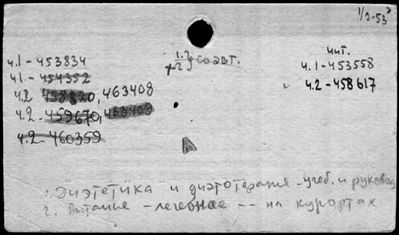 1/3-53
ч.1-453834
ч1-454352
ч.2 498320, 463408
ч.2-459670, 463409
ч.2-460359
+ 1.2} соавт.
чит.
ч.1-453558
ч.2-458617
1. Диэтетика и диэтотерапия - учеб. и руковод
2. Питание - лечебное -- на курортах